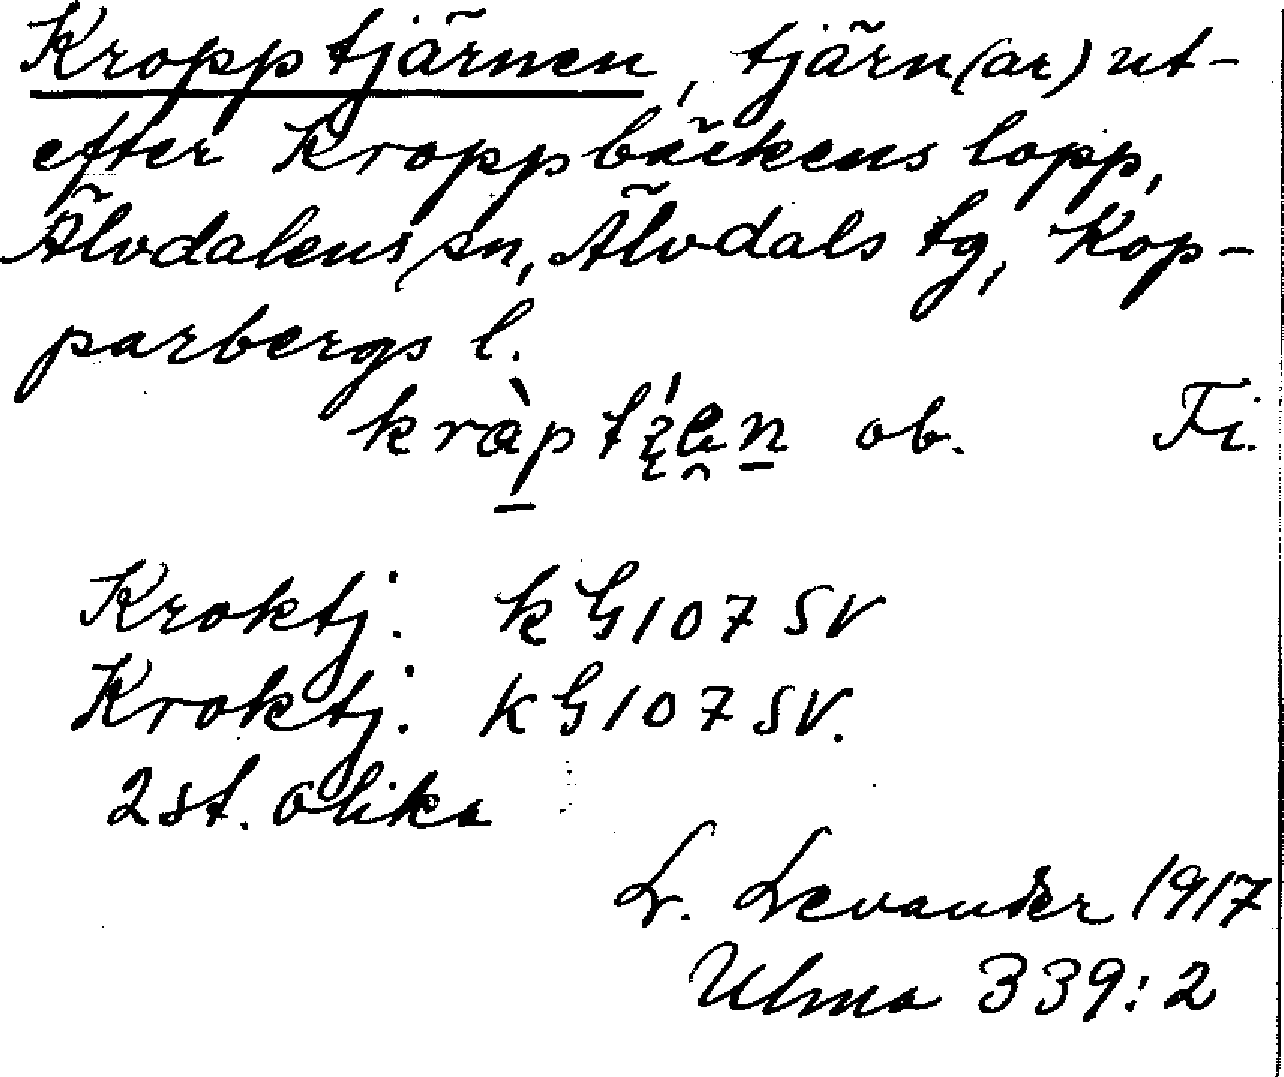 Kropptjärnen, tjärn(ar) ut-
efter Kroppbäckens lopp,
Älvdalens sn, Älvdals tg, Kop-
parbergs l.
ob. Fi.
Kroktj. k G 107 SV
Kroktj. k G 107 SV.
2 st. olika
L. Levander 1917
Ulma 339:2